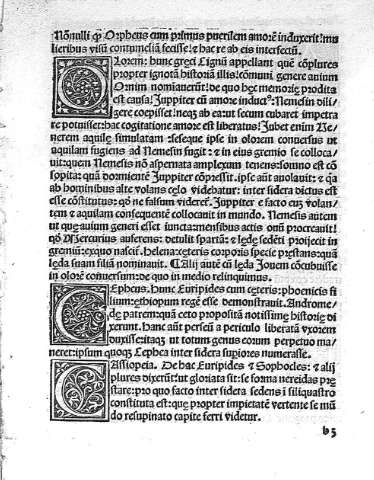 Nõnulli qͥ Orpheus cum primus puerilem amorẽ induxerit: mu/
lieribus visũ contumeliã fecisse: ⁊ hac re ab eis interfectũ.
OLorem: hunc greci Lignũ appellant quẽ cõplures
propter ignotã historiã illis: cõmuni genere auium
Ornim nominauerũt: de quo hęc memorię prodita
est causa: Juppiter cũ amore inductꝰ: Nemesin dili/
gere coepisset: neqꝫ ab ea: ut secum cubaret impetra
re potuisset: hac cogitatione amore est liberatus: Jubet enim Ue/
nerem aquilę simulatam: seseque ipse in olorem conuersus ut
aquilam fugiens ad Nemesin fugit: ⁊ in eius gremio se colloca/
uit: quem Nemesis nõ aspernata amplexum tenens: somno est cõ
sopita: quã dormientẽ Juppiter cõpressit: ipse aũt auolauit: ⁊ qa
ab hominibus alte volans cęlo videbatur: inter sidera dictus est
esse cõstitutus: qõ ne falsum viderẽt. Juppiter e facto eum volan/
tem ⁊ aquilam consequentẽ collocauit in mundo. Nemesis autem
ut que auium generi esset iuncta: mensibus actis onũ procreauit:
qõ Mercurius auferens: detulit spartã: ⁊ lędę sedẽti proiecit in
gremiũ: ex quo nascit̃ Helena: cęteris corporis specie pręstans: quã
lęda suam filiã nominauit. ¶ Alij autẽ cũ lęda Jouem cõcubuisse
in olorẽ conuersum: de quo in medio relinquimus.
CEpheus. Hunc Euripides cum cęteris: phoenicis fi
lium: ęthiopum regẽ esse demonstrauit. Androme/
dę patrem: quã ceto proposita notissimę historię di
xerunt. Hanc aũt perseũ a periculo liberatã vxorem
duxisse: itaqꝫ ut totum genus eorum perpetuo ma/
neret: ipsum quoqꝫ Cephea inter sidera supiores numerasse.
CAssiopeia. De hac Euripides ⁊ Sophocles: ⁊ alij
plures dixerũt: ut gloriata sit: se forma nereidas prę
stare: pro quo facto inter sidera sedens ĩ siliquastro
constituta est: quę propter impietatẽ vertente se mũ
do resupinato capite ferri videtur.
b5